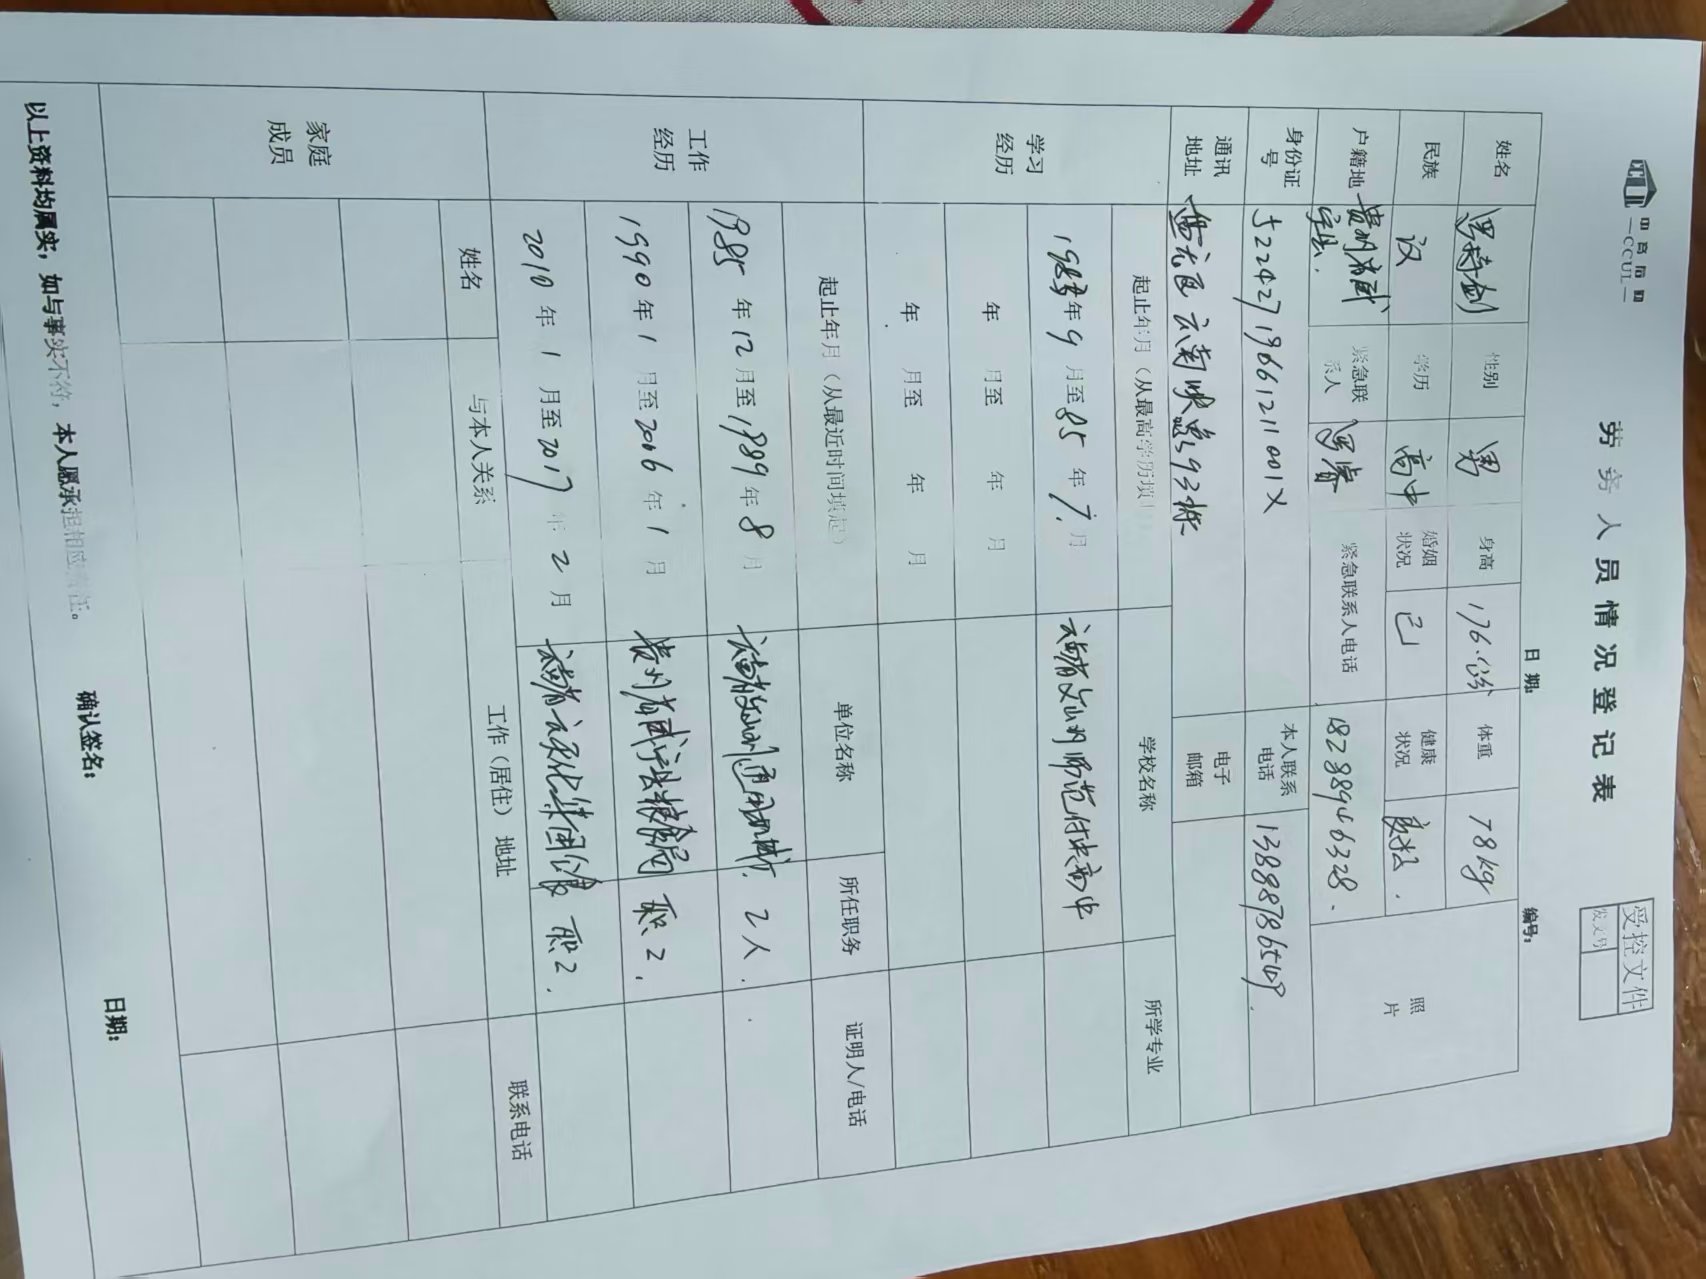 中高后勤
—CCUL—
受控文件
发文号
劳务人员情况登记表
日期: 编号:
姓名 性别 男 身高 176.公分 体重 78kg 照片
民族 汉 学历 高中 婚姻状况 已 健康状况
户籍地 贵州省威宁县. 紧急联系人 罗睿 紧急联系人电话 18288946328.
身份证号 52242719661211001X 本人联系电话
通讯地址 云南映象93栋 电子邮箱
学习经历 起止年月(从最高学历填) 学校名称 所学专业
年9月至85年7.月 云南省文山州师范付属高中
年 月至 年 月
年 月至 年 月
工作经历 起止年月(从最近时间填起) 单位名称 所任职务 证明人/电话
1985年12月至1989年8月 云南省文山州通用机械厂. 工人.
1990年1月至2006年1月 贵州省威宁县粮食局 职工.
2010年1月至2017年2月 云南省云天化集团 职工.
家庭成员 姓名 与本人关系 工作(居住)地址 联系电话
以上资料均属实,如与事实不符,本人愿承担相应责任。
确认签名: 日期: